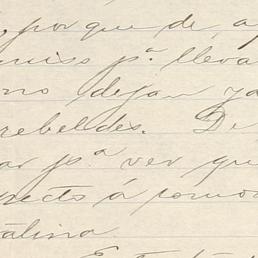 , por que de, a
miso p.ª lleva
no dejan ya
rebeldes. De
ar p.ª ver que
pecto á
talina